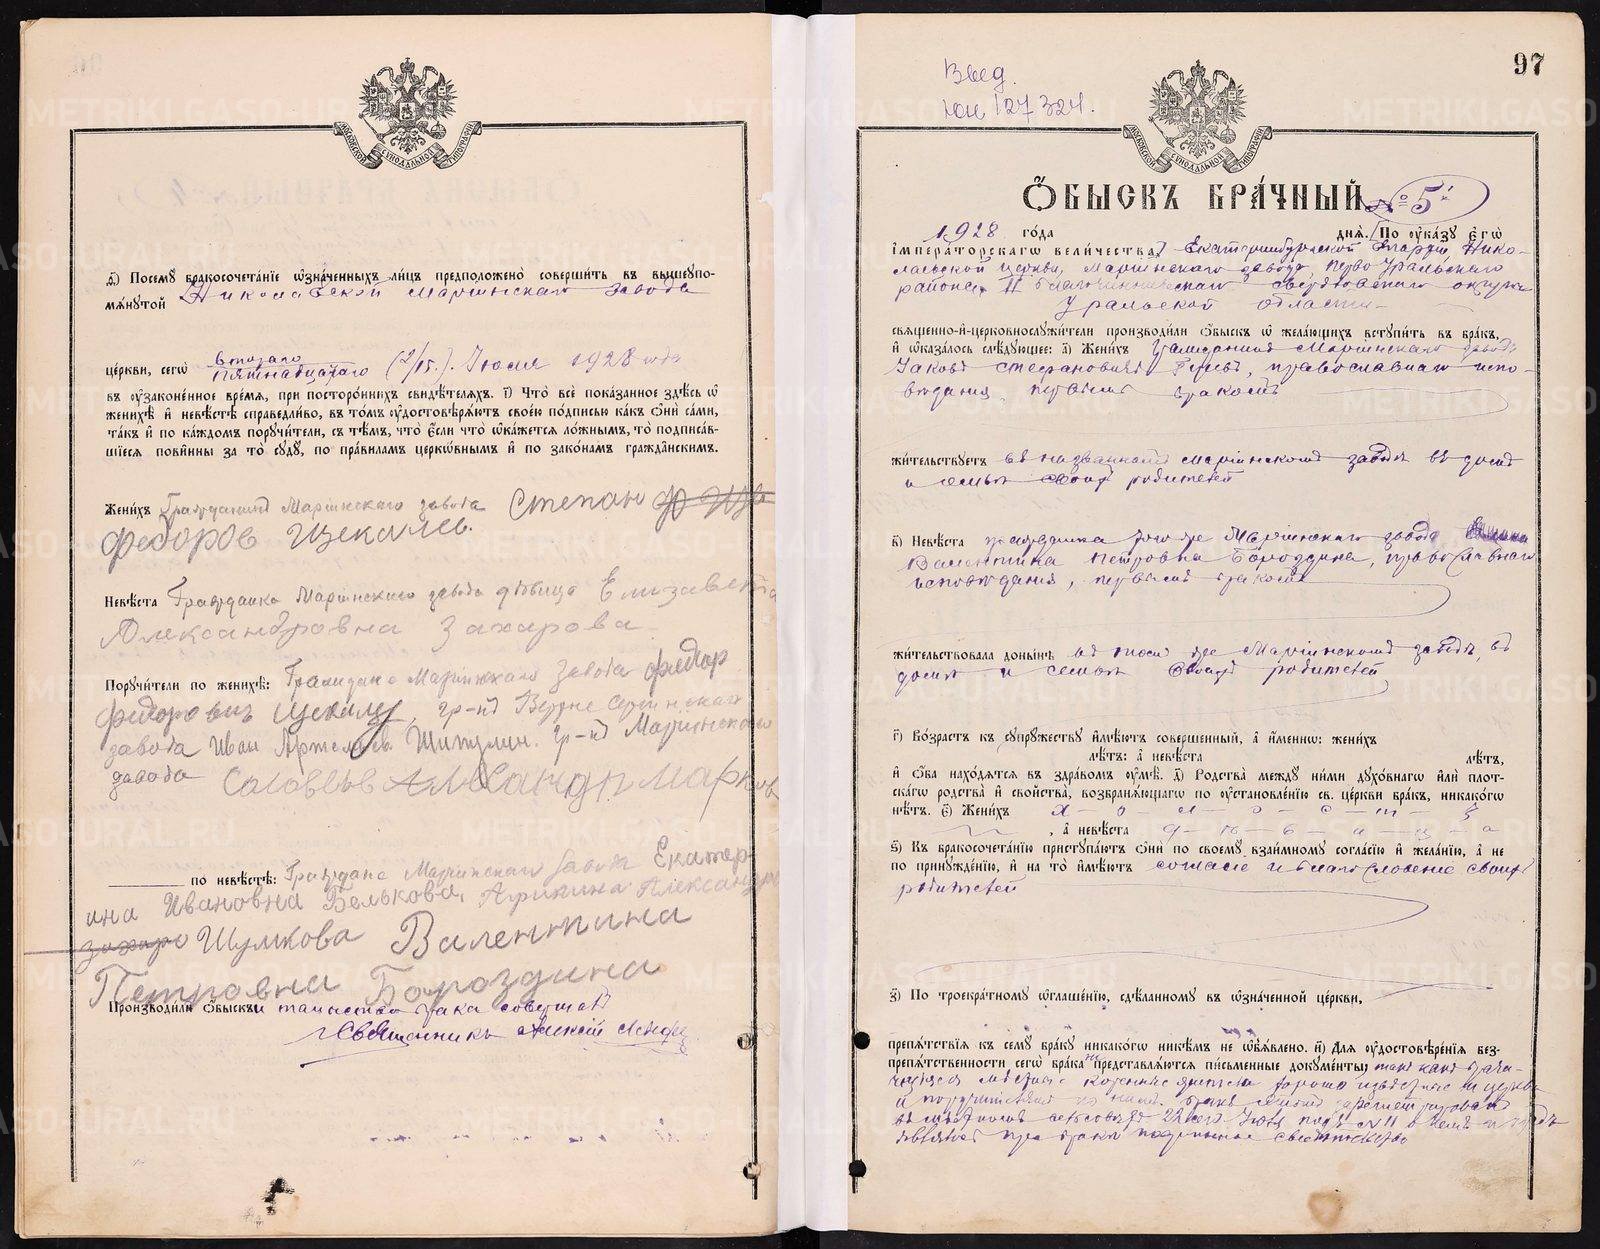 МОСКОВСКОЙ СѴНОДАЛЬНОЙ ТИПОГРАФІИ
д҃) Посемꙋ бракосочетанїе ѡзначенныхъ лицъ предположено совершить въ вышеупо-
мянутой Николаевской Маріинскаго завода
церкви, сегѡ второго
пятнадцатаго (2/15). Іюля 1928 года
въ ѹзаконенное время, при постороннихъ свидѣтеляхъ. і҃) Что все показанное здѣсь ѡ
женихѣ и невѣстѣ справедливо, въ томъ ѹдостовѣряютъ своею подписью какъ ѻни сами,
такъ и по каждомъ поручители, съ тѣмъ, что если что ѡкажется ложнымъ, то подписав-
шїеся повинны за то сꙋдꙋ, по правиламъ церкѡвнымъ и по законамъ гражданскимъ.
Женихъ Гражданинъ Маріинскаго завода Степан
Федоров Щекалев.
Невѣста Гражданка Маріинскаго завода дѣвица Елизавета
Александровна Захарова
Поручители по женихѣ: Граждане Маріинскаго завода Федор
Федорович Щекалев, гр-нъ
завода Иван Шипулин. гр-нъ Маріинскаго
завода Соловьев Александр Марков
по невѣстѣ: Граждане Маріинскаго завода Екатер-
ина Ивановна Белькова, Александра
Шумкова Валентина
Петровна Бороздина
Производили ѻбыскъ и таинство брака совершал
Священникъ Алексій
97
Введ.
127324.
МОСКОВСКОЙ СѴНОДАЛЬНОЙ ТИПОГРАФІИ
Ѻбыскъ брачный № 5й
1928 года дня. По ѹказꙋ Егѡ
императорскагѡ величества, Екатеринбургской Епархіи, Нико-
лаевской церкви, Маріинскаго завода, Перво-Уральскаго
района, II благочинническаго Свердловскаго округа
Уральской области
священно-и-церковнослꙋжители производили ѻбыскъ ѡ желающихъ вступить въ бракъ,
и ѡказалось слѣдующее: а҃) Женихъ Гражданинъ Маріинскаго завода
Іаковъ Стефановичъ православнаго испо-
вѣданія, первымъ бракомъ
жительствуетъ въ названномъ Маріинскомъ заводѣ въ домѣ
и семьѣ своихъ родителей
в҃) Невѣста гражданка того же Маріинскаго завода
Валентина Петровна Бороздина, православнаго
исповѣданія, первымъ бракомъ
жительствовала донынѣ въ томъ же Маріинскомъ заводѣ, въ
домѣ и семьѣ своихъ родителей
г҃) Возрастъ къ сꙋпружествꙋ имѣютъ совершенный, а именнѡ: женихъ
лѣтъ: а невѣста лѣтъ,
и ѻба находятся въ здравомъ ѹмѣ. д҃) Родства между ними дꙋховнагѡ или плот-
скагѡ родства и свойства, возбраняющагѡ по ѹстановленїю св. церкви бракъ, никакогѡ
нѣтъ. є҃) Женихъ х-о-л-о-с-т-ъ
, а невѣста д-ѣ-в-и-ц-а
ѕ҃) Къ бракосочетанїю приступаютъ ѻни по своемꙋ взаимномꙋ согласїю и желанїю, а не
по принꙋжденїю, и на то имѣютъ согласіе и благословеніе своихъ
родителей
з҃) По троекратномꙋ ѡглашенїю, сдѣланномꙋ въ ѡзначенной церкви,
препятствїя къ семꙋ бракꙋ никакогѡ никѣмъ не ѡбъявлено. и҃) Для ѹдостовѣренїя без-
препятственности сегѡ брака не представляются письменные документы, такъ какъ брачу-
щіеся мѣстные коренные жители хорошо извѣстные и церкви
и поручителямъ по нимъ. бракъ зарегистрированъ
въ мѣстномъ сельсовѣтѣ 22го Іюня подъ № 11
бракѣ свидѣтельство
METRIKI.GASO-URAL.RU